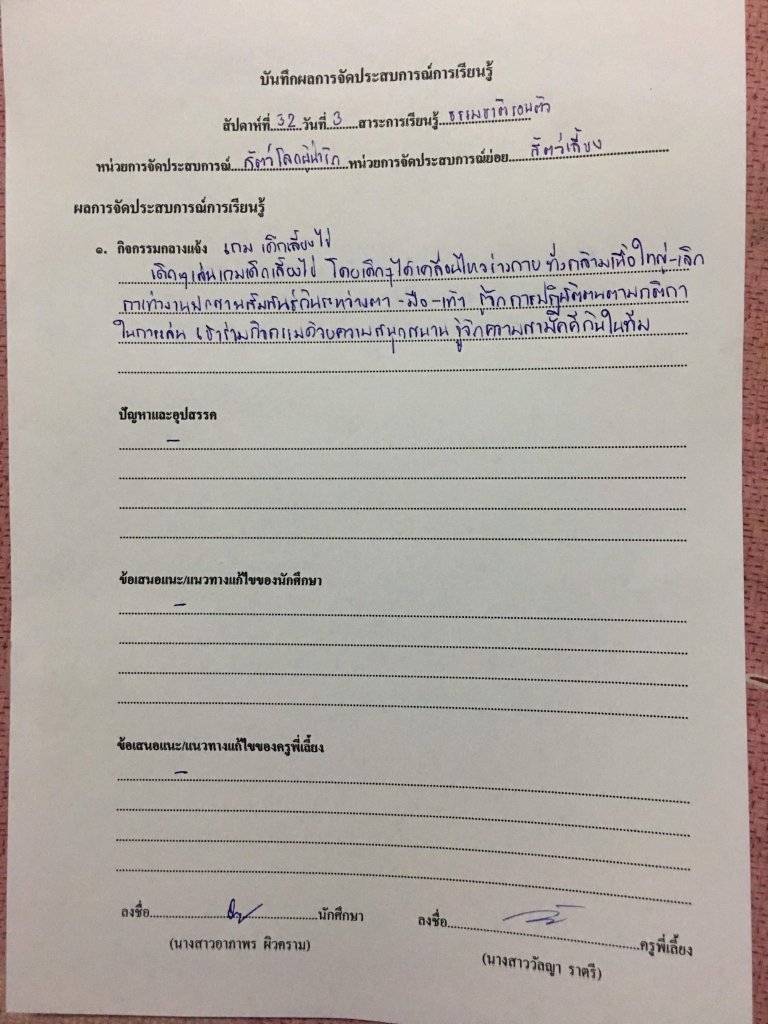 บันทึกผลการจัดประสบการณ์การเรียนรู้
สัปดาห์ที่ 32 วันที่ 3 สาระการเรียนรู้ ธรรมชาติรอบตัว
หน่วยการจัดประสบการณ์ สัตว์โลกผู้น่ารัก หน่วยการจัดประสบการณ์ย่อย สัตว์เลี้ยง
ผลการจัดประสบการณ์การเรียนรู้
๑. กิจกรรมกลางแจ้ง เกม เด็กเลี้ยงไข่
เด็กๆเล่นเกมเด็กเลี้ยงไข่ โดยเด็กๆได้เคลื่อนไหวร่างกาย ทั้งกล้ามเนื้อใหญ่-เล็ก
การทำงานประสานสัมพันธ์กันระหว่างตา-มือ-เท้า รู้จักการปฏิบัติตนตามกติกา
ในการเล่น เข้าร่วมกิจกรรมด้วยความสนุกสนาน รู้จักความสามัคคีกันในทีม
ปัญหาและอุปสรรค
-
ข้อเสนอแนะ/แนวทางแก้ไขของนักศึกษา
-
ข้อเสนอแนะ/แนวทางแก้ไขของครูพี่เลี้ยง
-
ลงชื่อ นักศึกษา ลงชื่อ ครูพี่เลี้ยง
(นางสาวอาภาพร ผิวคราม) (นางสาววัลญา ราตรี)